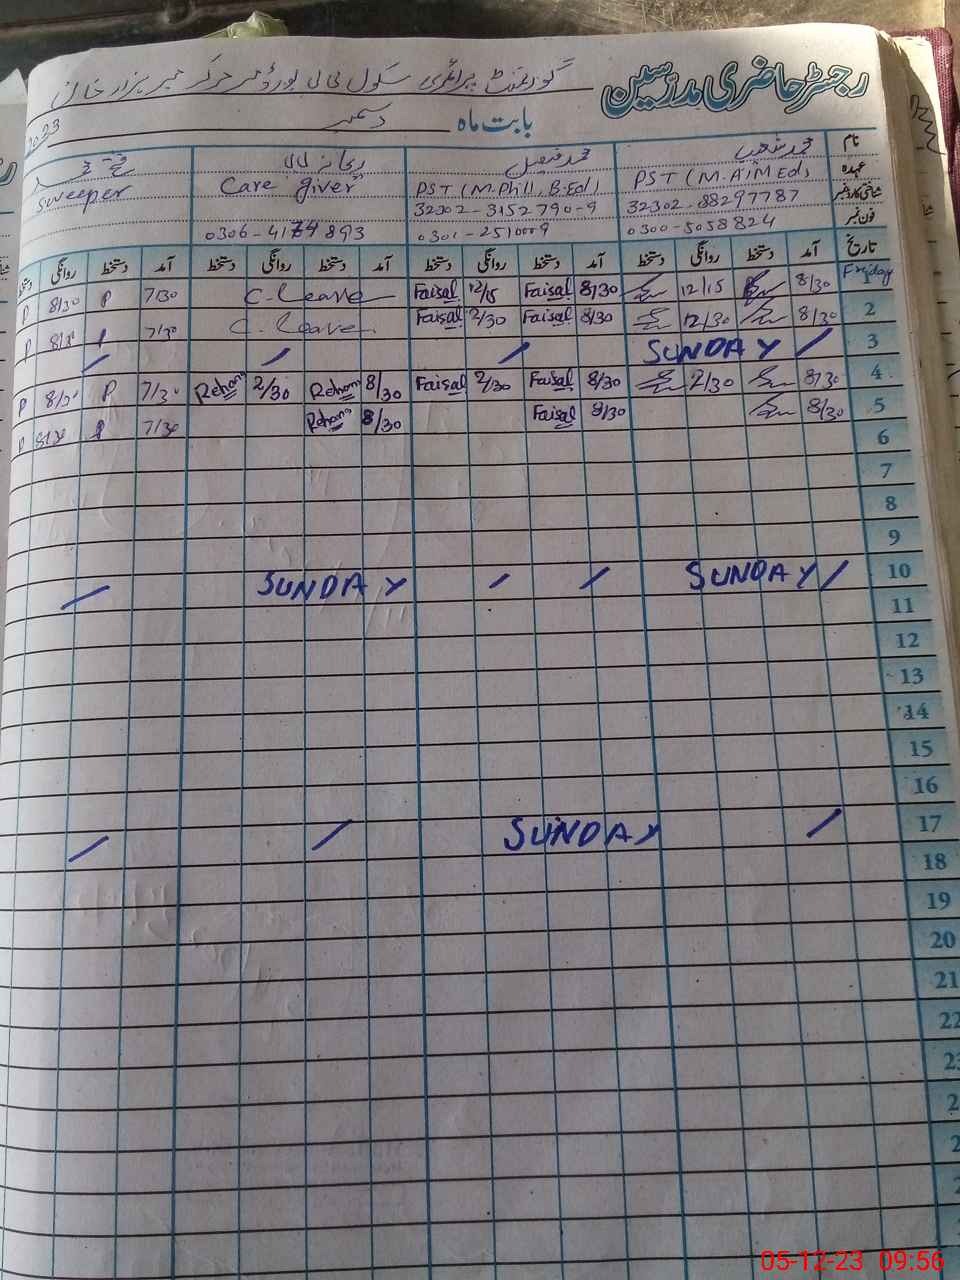 رجسٹر حاضری مدرسین
گورنمنٹ پرائمری سکول
بابت ماہ دسمبر 2023
نام محمد شعیب محمد فیصل ریحانہ بی بی
عہدہ PST (M.A, M.Ed) PST (M.Phil, B.Ed) Care giver Sweeper
شناختی کارڈ نمبر 32302-88297787 32302-3152790-9
فون نمبر 0300-5058824 0301-2510009 0306-4174893
تاریخ آمد دستخط روانگی دستخط آمد دستخط روانگی دستخط آمد دستخط روانگی دستخط آمد دستخط روانگی دستخط
Friday
1 8/30 12/15 8/30 Faisal 12/15 Faisal C. Leave 7/30 P 8/30 P
2 8/30 12/30 8/30 Faisal 2/30 Faisal C. Leave 7/30 P 8/30 P
3 SUNDAY
4 8/30 2/30 8/30 Faisal 2/30 Faisal 8/30 Rehana 2/30 Rehana 7/30 P 8/30 P
5 8/30 8/30 Faisal 8/30 Rehana 7/30 P 8/30 P
6
7
8
9
10 SUNDAY SUNDAY
11
12
13
14
15
16
17 SUNDAY
18
19
20
21
22
05-12-23 09:56